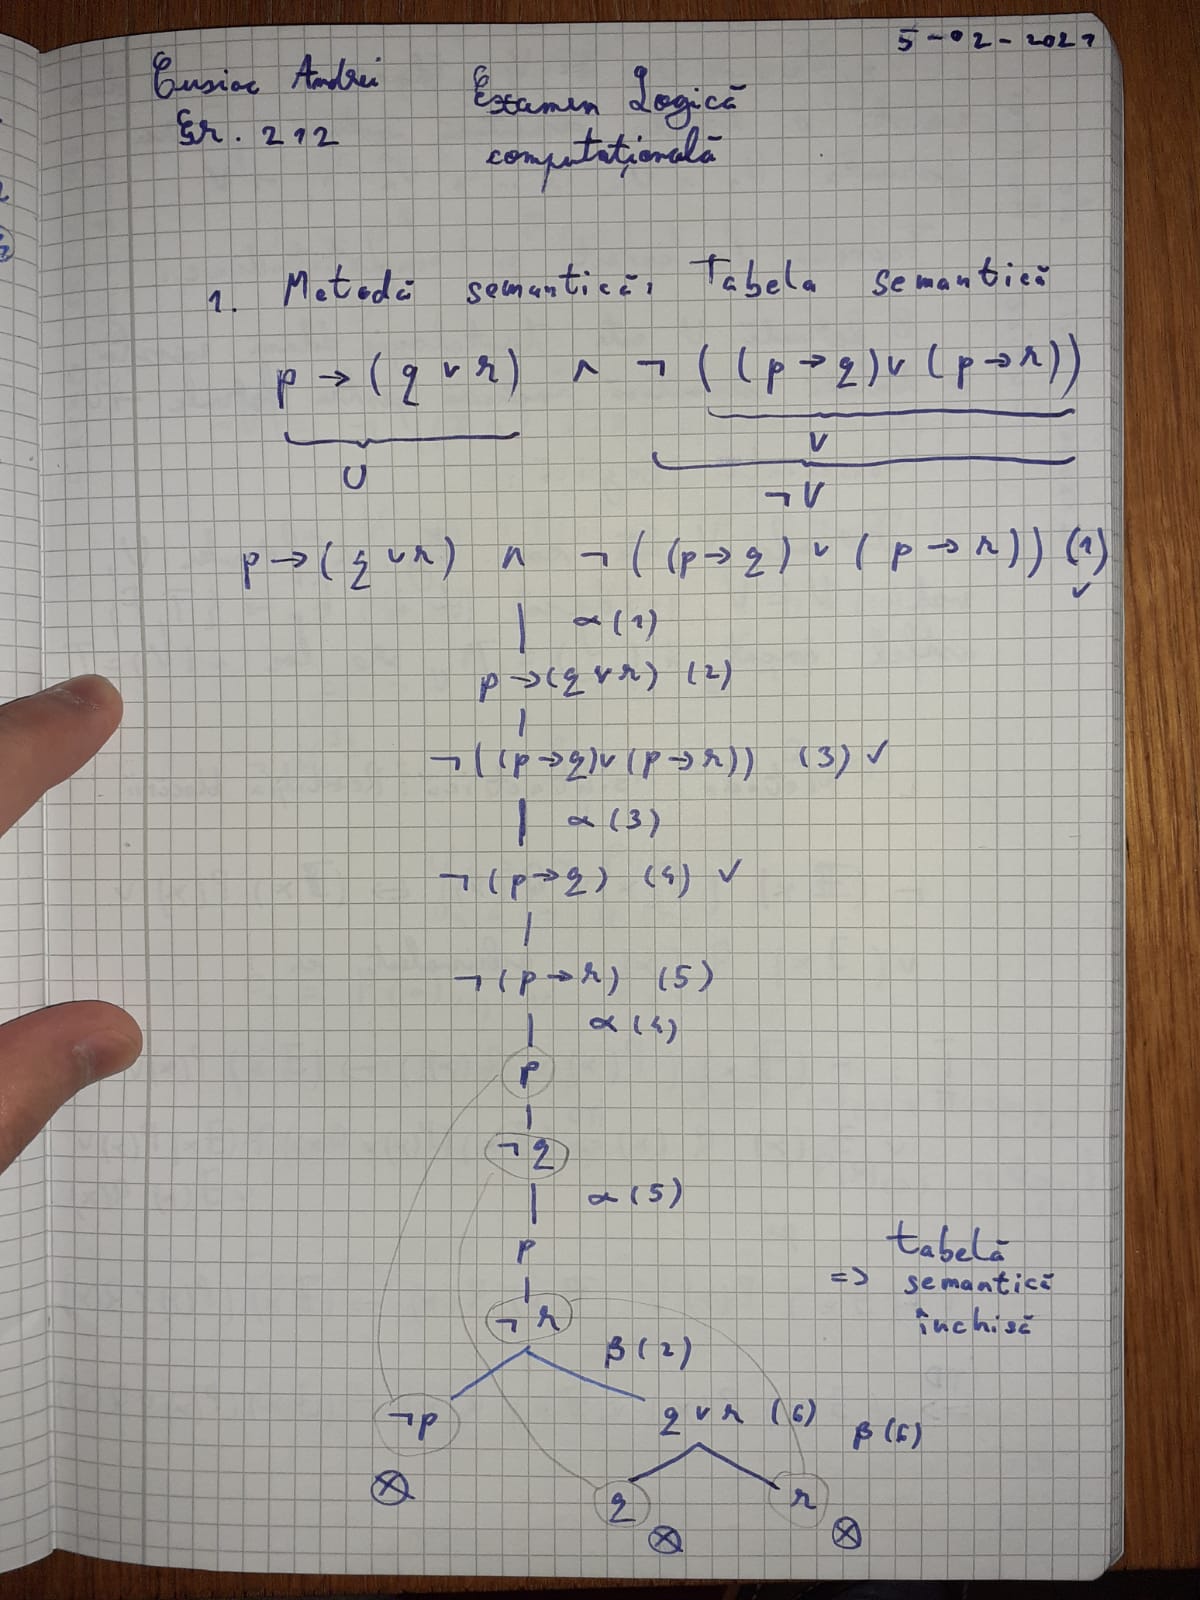 5-02-2021
Cusiac Andrei Examen Logică
Gr. 212 computațională
1. Metodă semantică: Tabela semantică
p → (q ∨ r) ∧ ¬ ((p → q) ∨ (p → r))
U V
¬V
p → (q ∨ r) ∧ ¬ ((p → q) ∨ (p → r)) (1) ✓
α (1)
p → (q ∨ r) (2)
¬ ((p → q) ∨ (p → r)) (3) ✓
α (3)
¬ (p → q) (4) ✓
¬ (p → r) (5)
α (4)
p
¬ q
α (5)
p
¬ r
=> tabelă
semantică
închisă
β (2)
¬p q ∨ r (6) β (6)
⊗ q r
⊗ ⊗